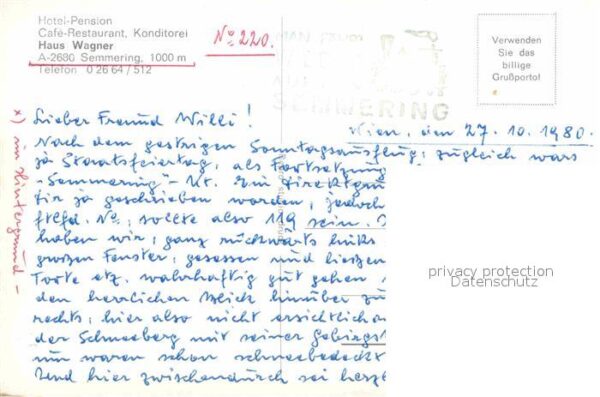 Hotel-Pension
Café-Restaurant, Konditorei
Haus Wagner
A-2680 Semmering, 1000 m
Telefon 0 26 64 / 512
No 220.
SEMMERING
Verwenden
Sie das
billige
Grußporto!
x) im Hintergrund -
Lieber Freund Willi!
Wien, den 27.10.1980.
Nach dem gestrigen Sonntagsausflug; zugleich wars
ja Staatsfeiertag, als Fortsetzung
"Semmering"- Kt. Ein
für ja geschrieben worden, jedoch
ftlfd. No, sollte also 119 sein.
haben wir, ganz rückwärts links
großen Fenster, gesessen und ließen
Torte etz. wahrhaftig gut gehen
den herrlichen Blick hinüber zu
rechts, hier also nicht ersichtlich
der Schneeberg mit seiner Gebirgs
nun waren schon schneebedeckt
Und hier zwischendurch sei herz
privacy protection
Datenschutz